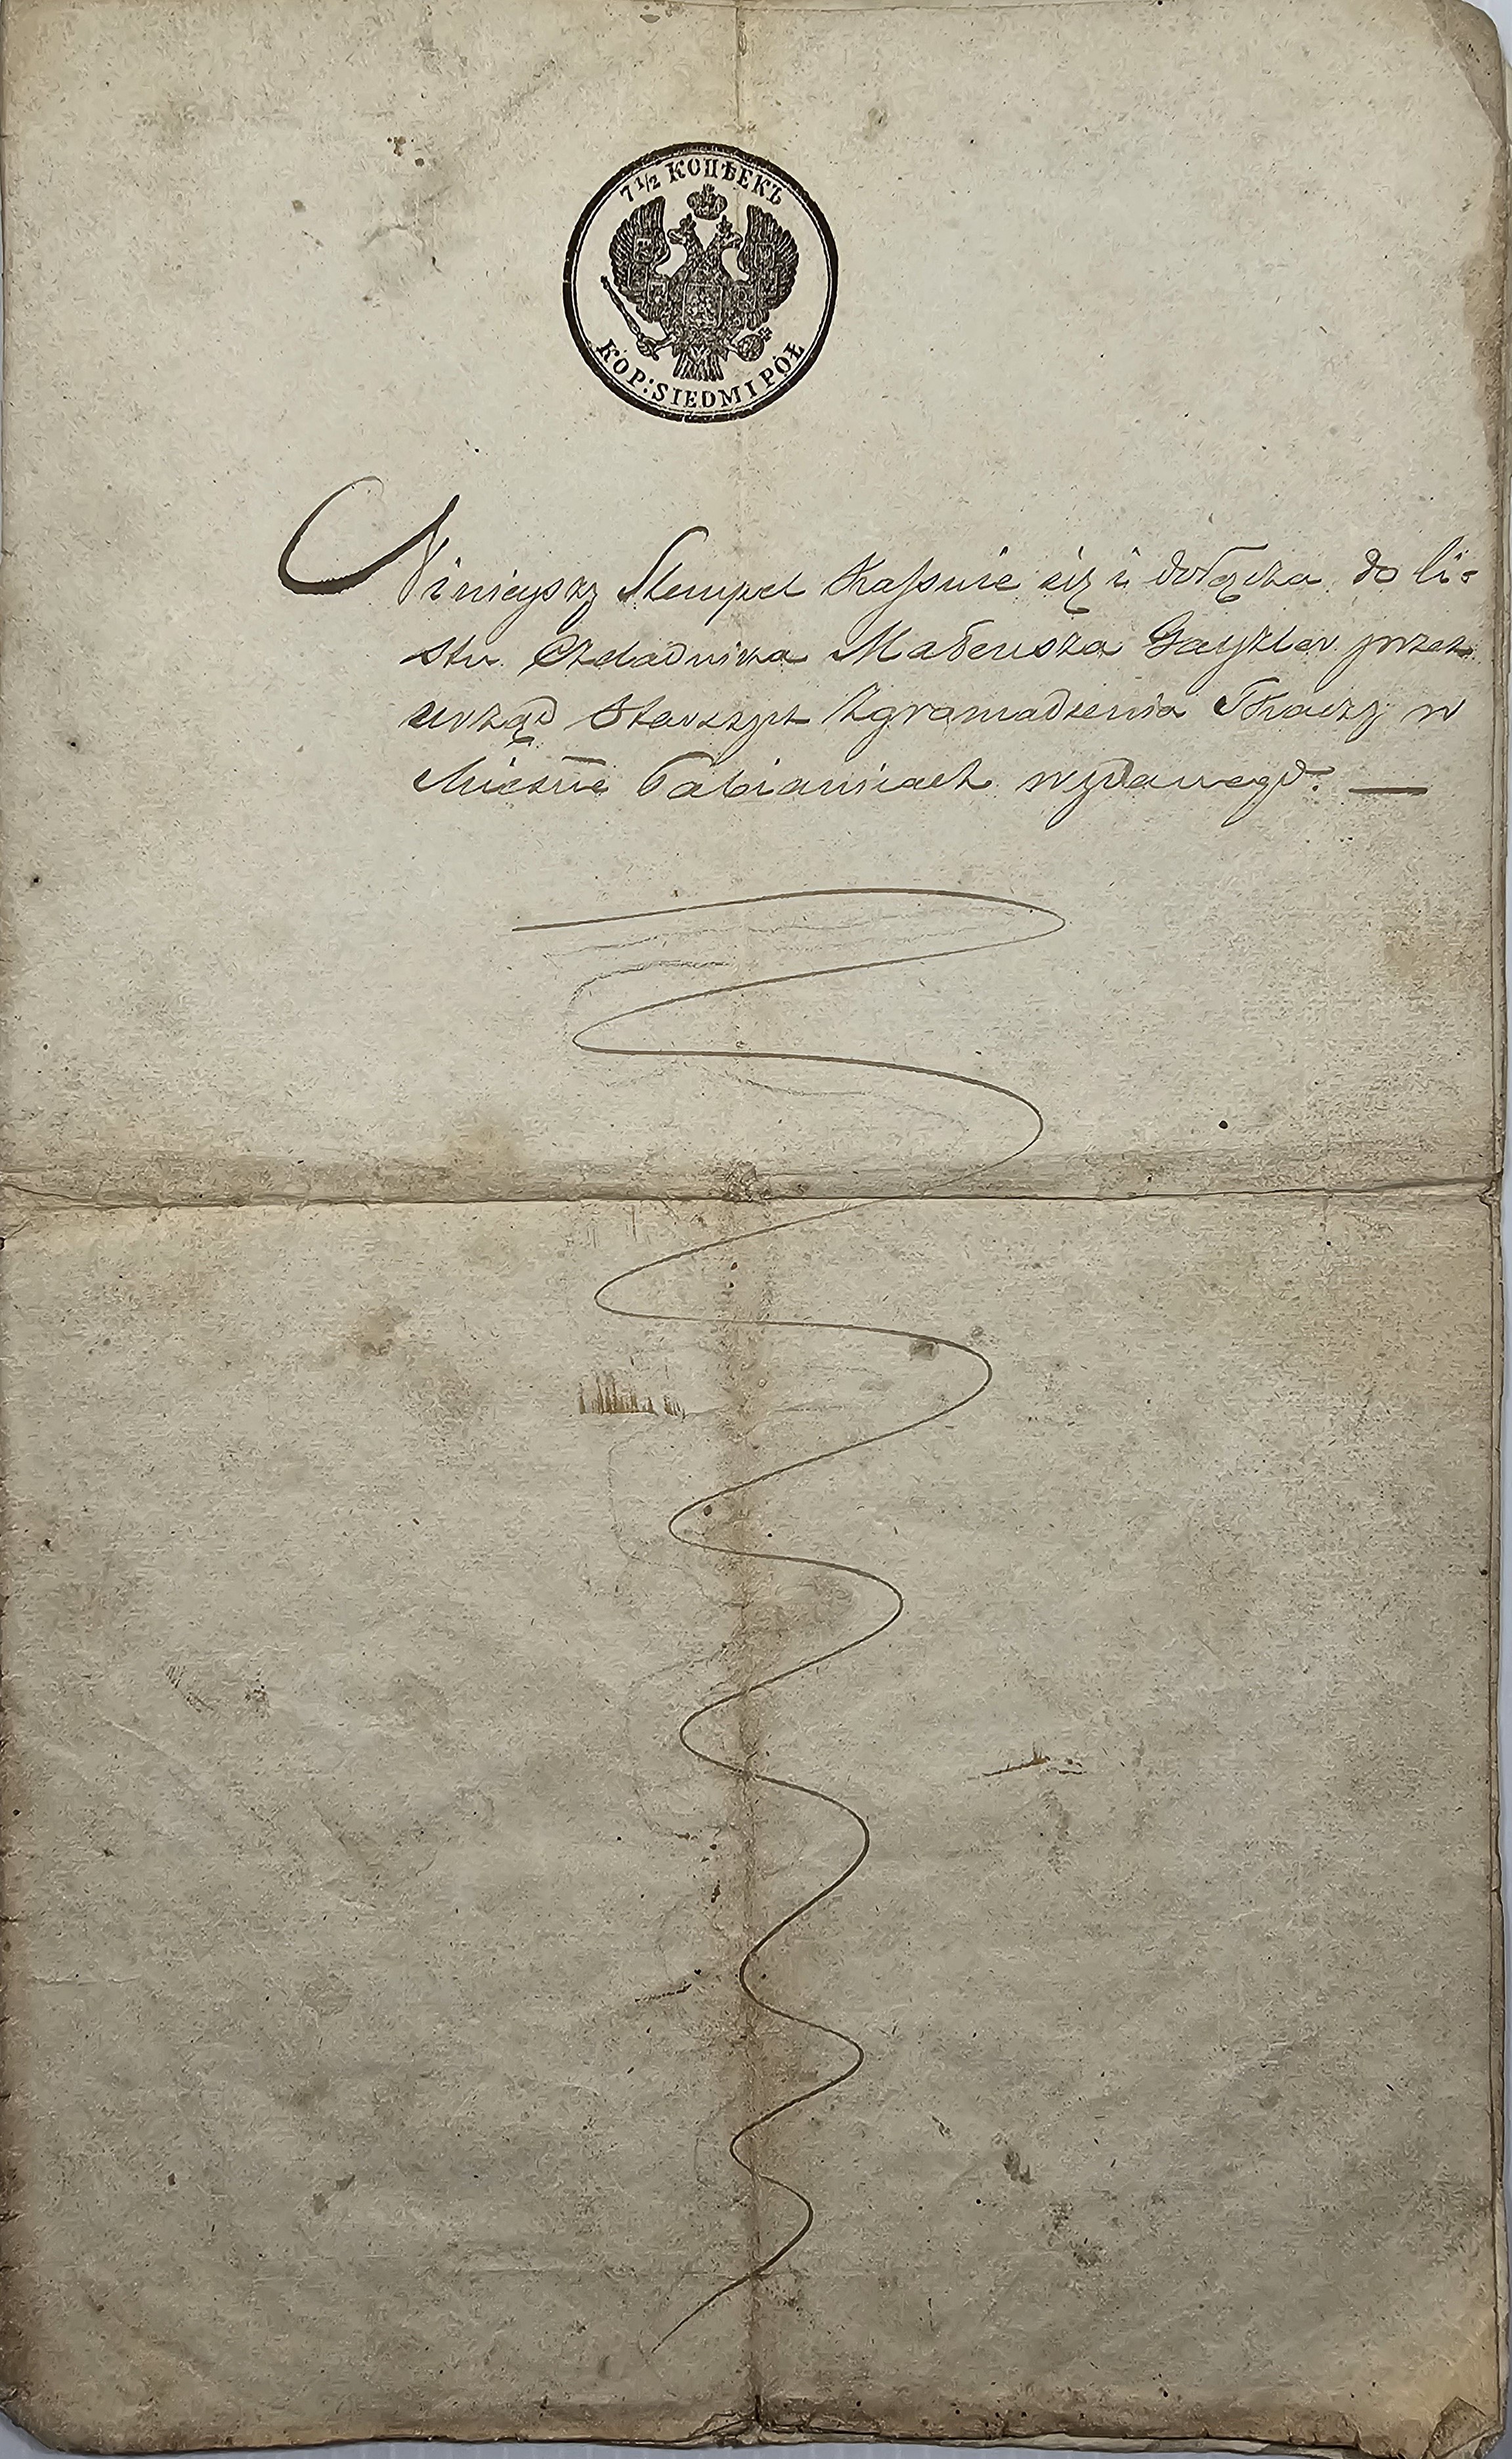 7 1/2 КОПѢЕКЪ
KOP: SIEDM I PÓŁ
Ninieyszy Stempel Kassuie się i dołącza do li-
stu Czeladnika Mateusza Gayzler przez
urząd Starszych Zgromadzenia Tkaczy w
Mieście Pabianicach wydanego. —